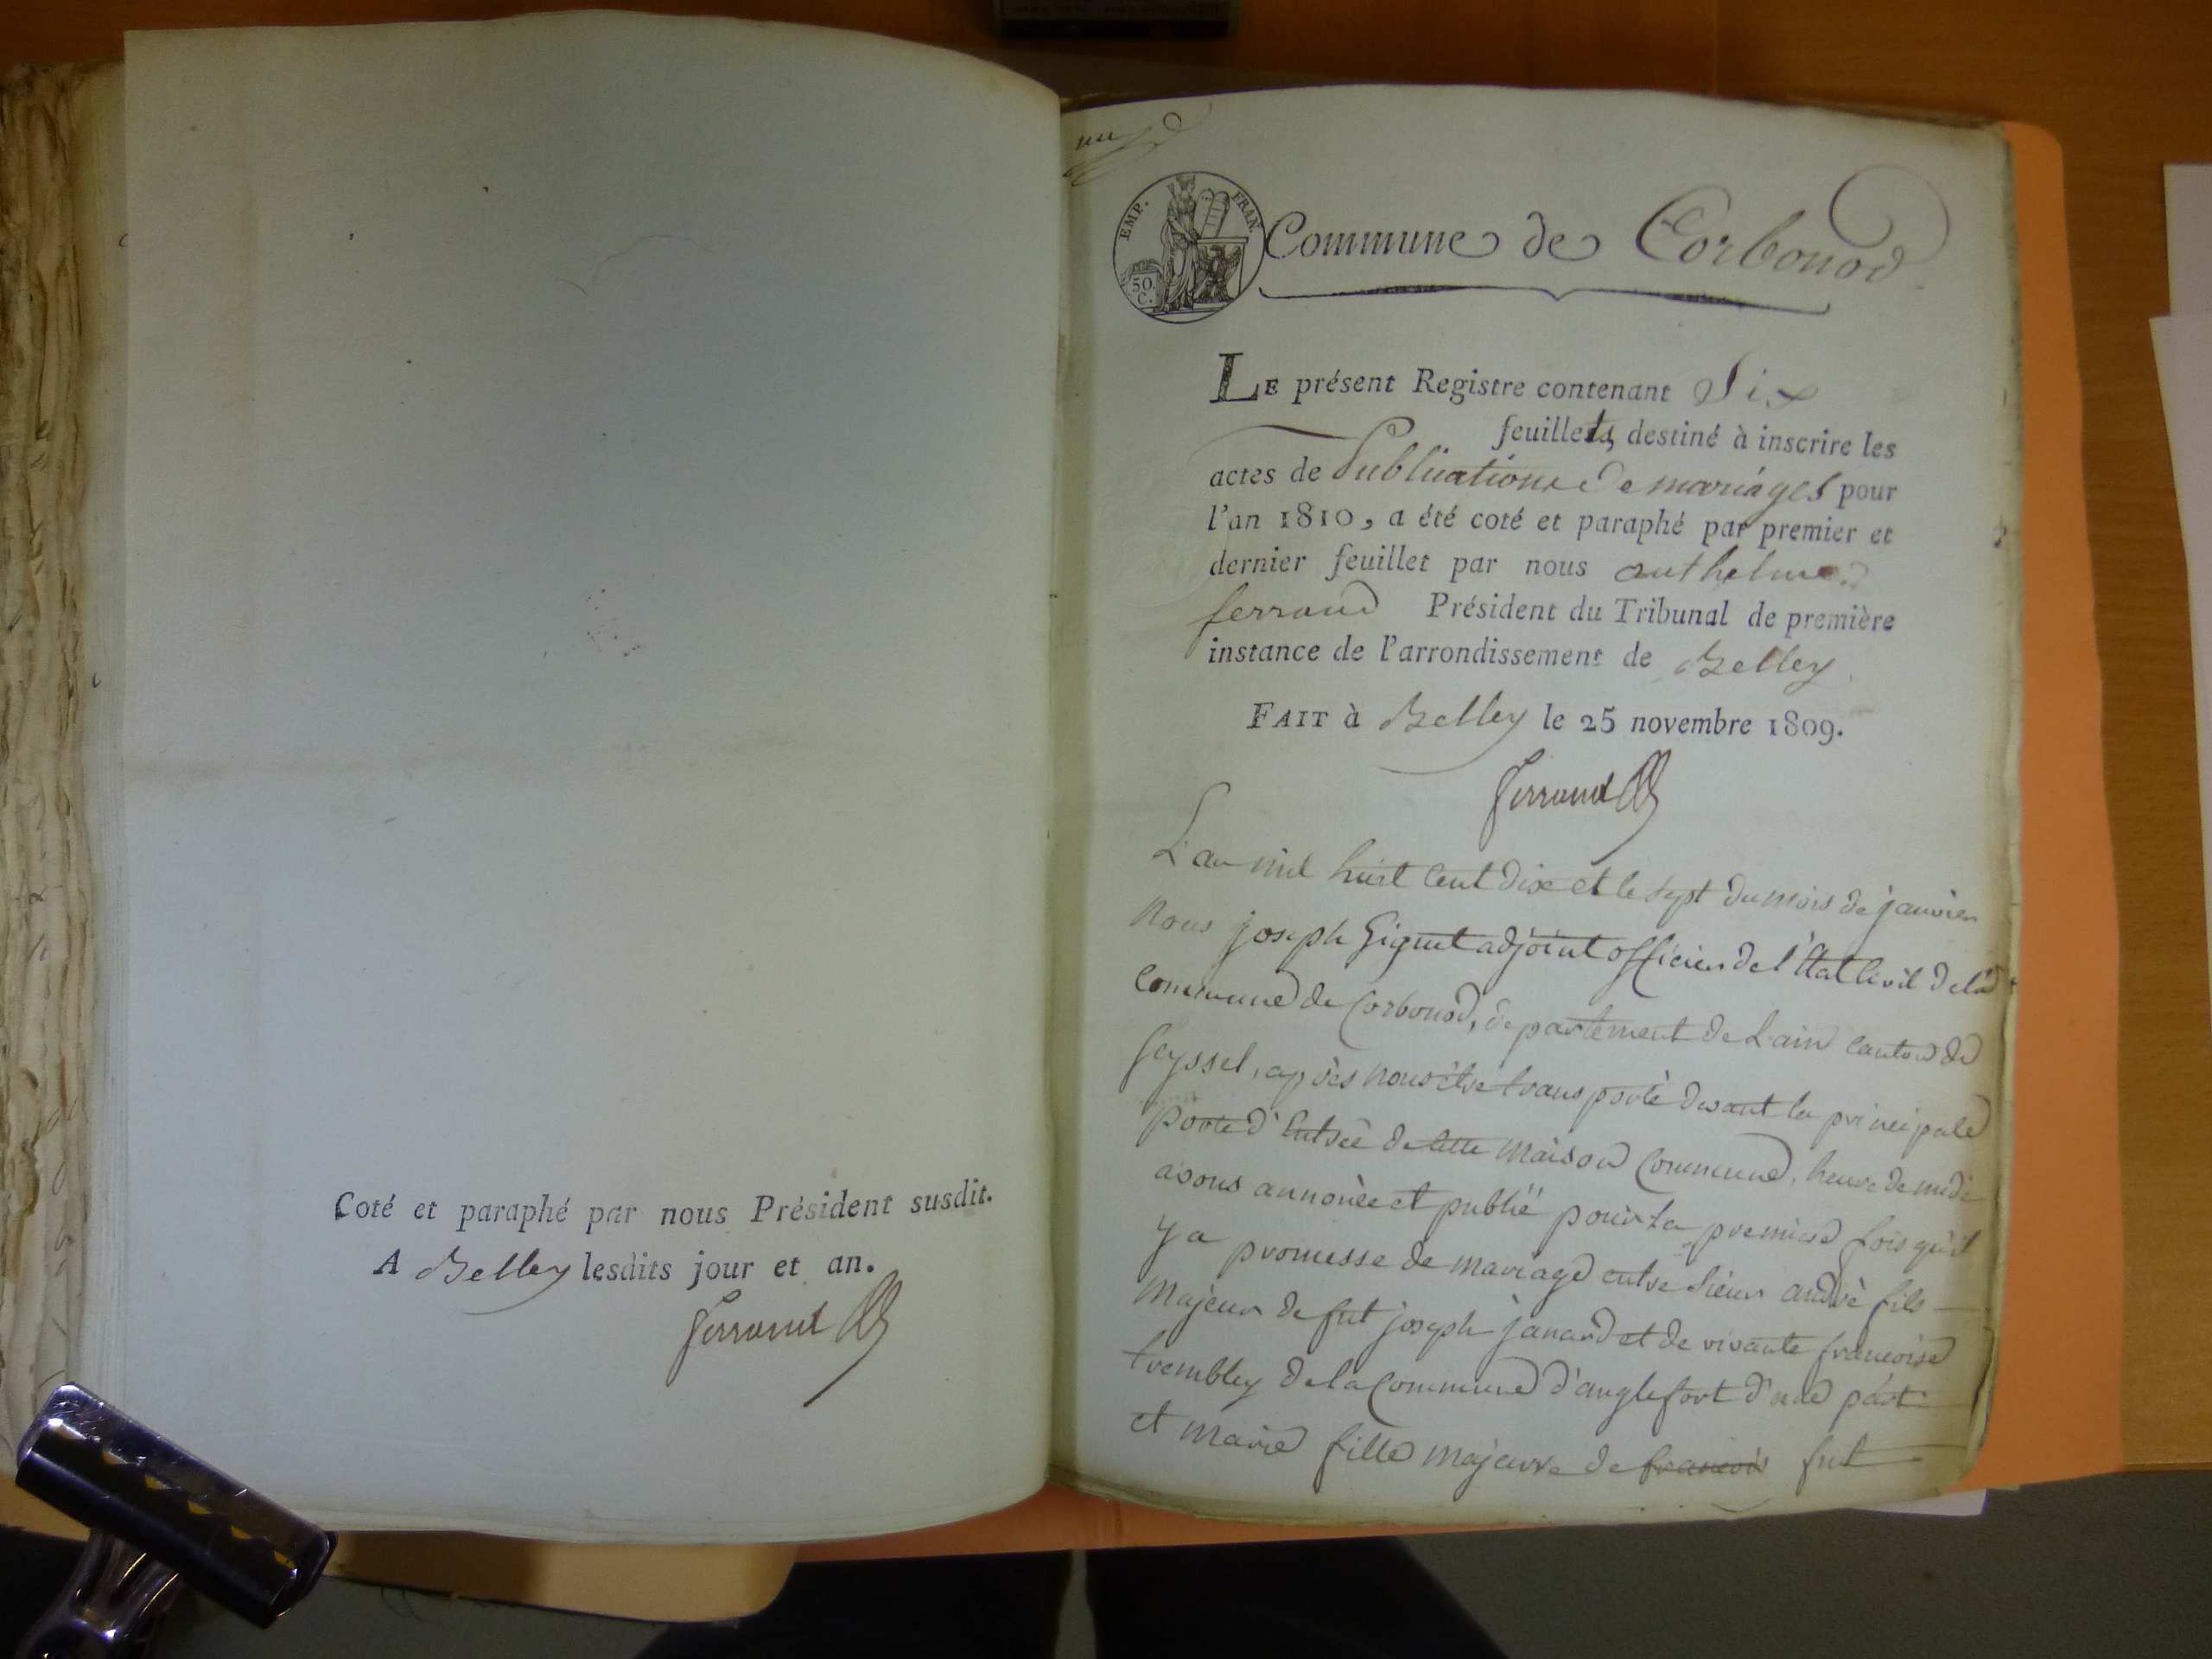 Coté et paraphé par nous Président susdit.
A Belley lesdits jour et an.
Ferrand
un
EMP. FRAN.
50. C.
Commune de Corbonod
LE présent Registre contenant Six
feuillets, destiné à inscrire les
actes de Publications de mariages pour
l'an 1810, a été coté et paraphé par premier et
dernier feuillet par nous anthelme
ferrand Président du Tribunal de première
instance de l'arrondissement de Belley
FAIT à Belley le 25 novembre 1809.
Ferrand
L'an mil huit Cent dix et le sept du mois de janvier
Nous joseph Giguet adjoint officier de l'Etat Civil de la
Commune de Corbonod, departement de L'ain Canton de
Seyssel, après nous être transporté devant la principale
porte d'Entrée de Cette Maison Commune, heure de midi
avons annoncé et publié pour la premiere fois qu'il
y a promesse de mariage entre Sieur andrè fils
Majeur de fut joseph janard et de vivante francoise
trembley de la Commune d'anglefort d'une part
et Marie fille Majeure de francois fut